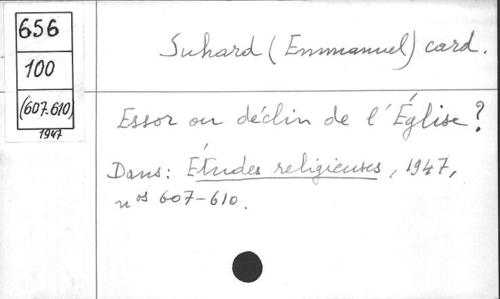 656
100
(607-610)
1947
Suhard (Emmanuel) card.
Essor ou déclin de l'Église?
Dans: Études religieuses, 1947,
nos 607-610.